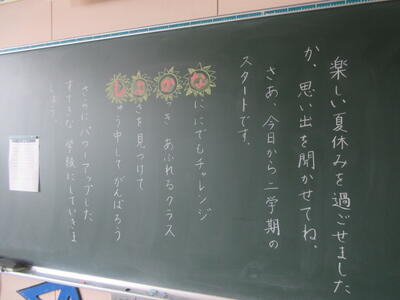 楽しい夏休みを過ごせました
か。思い出を聞かせてね。
さあ、今日から二学期の
スタートです。
なににでもチャレンジ
かっき あふれるクラス
よさを見つけて
しゅう中してがんばろう
さらにパワーアップした
すてきな 学級にしていきま
しょう。